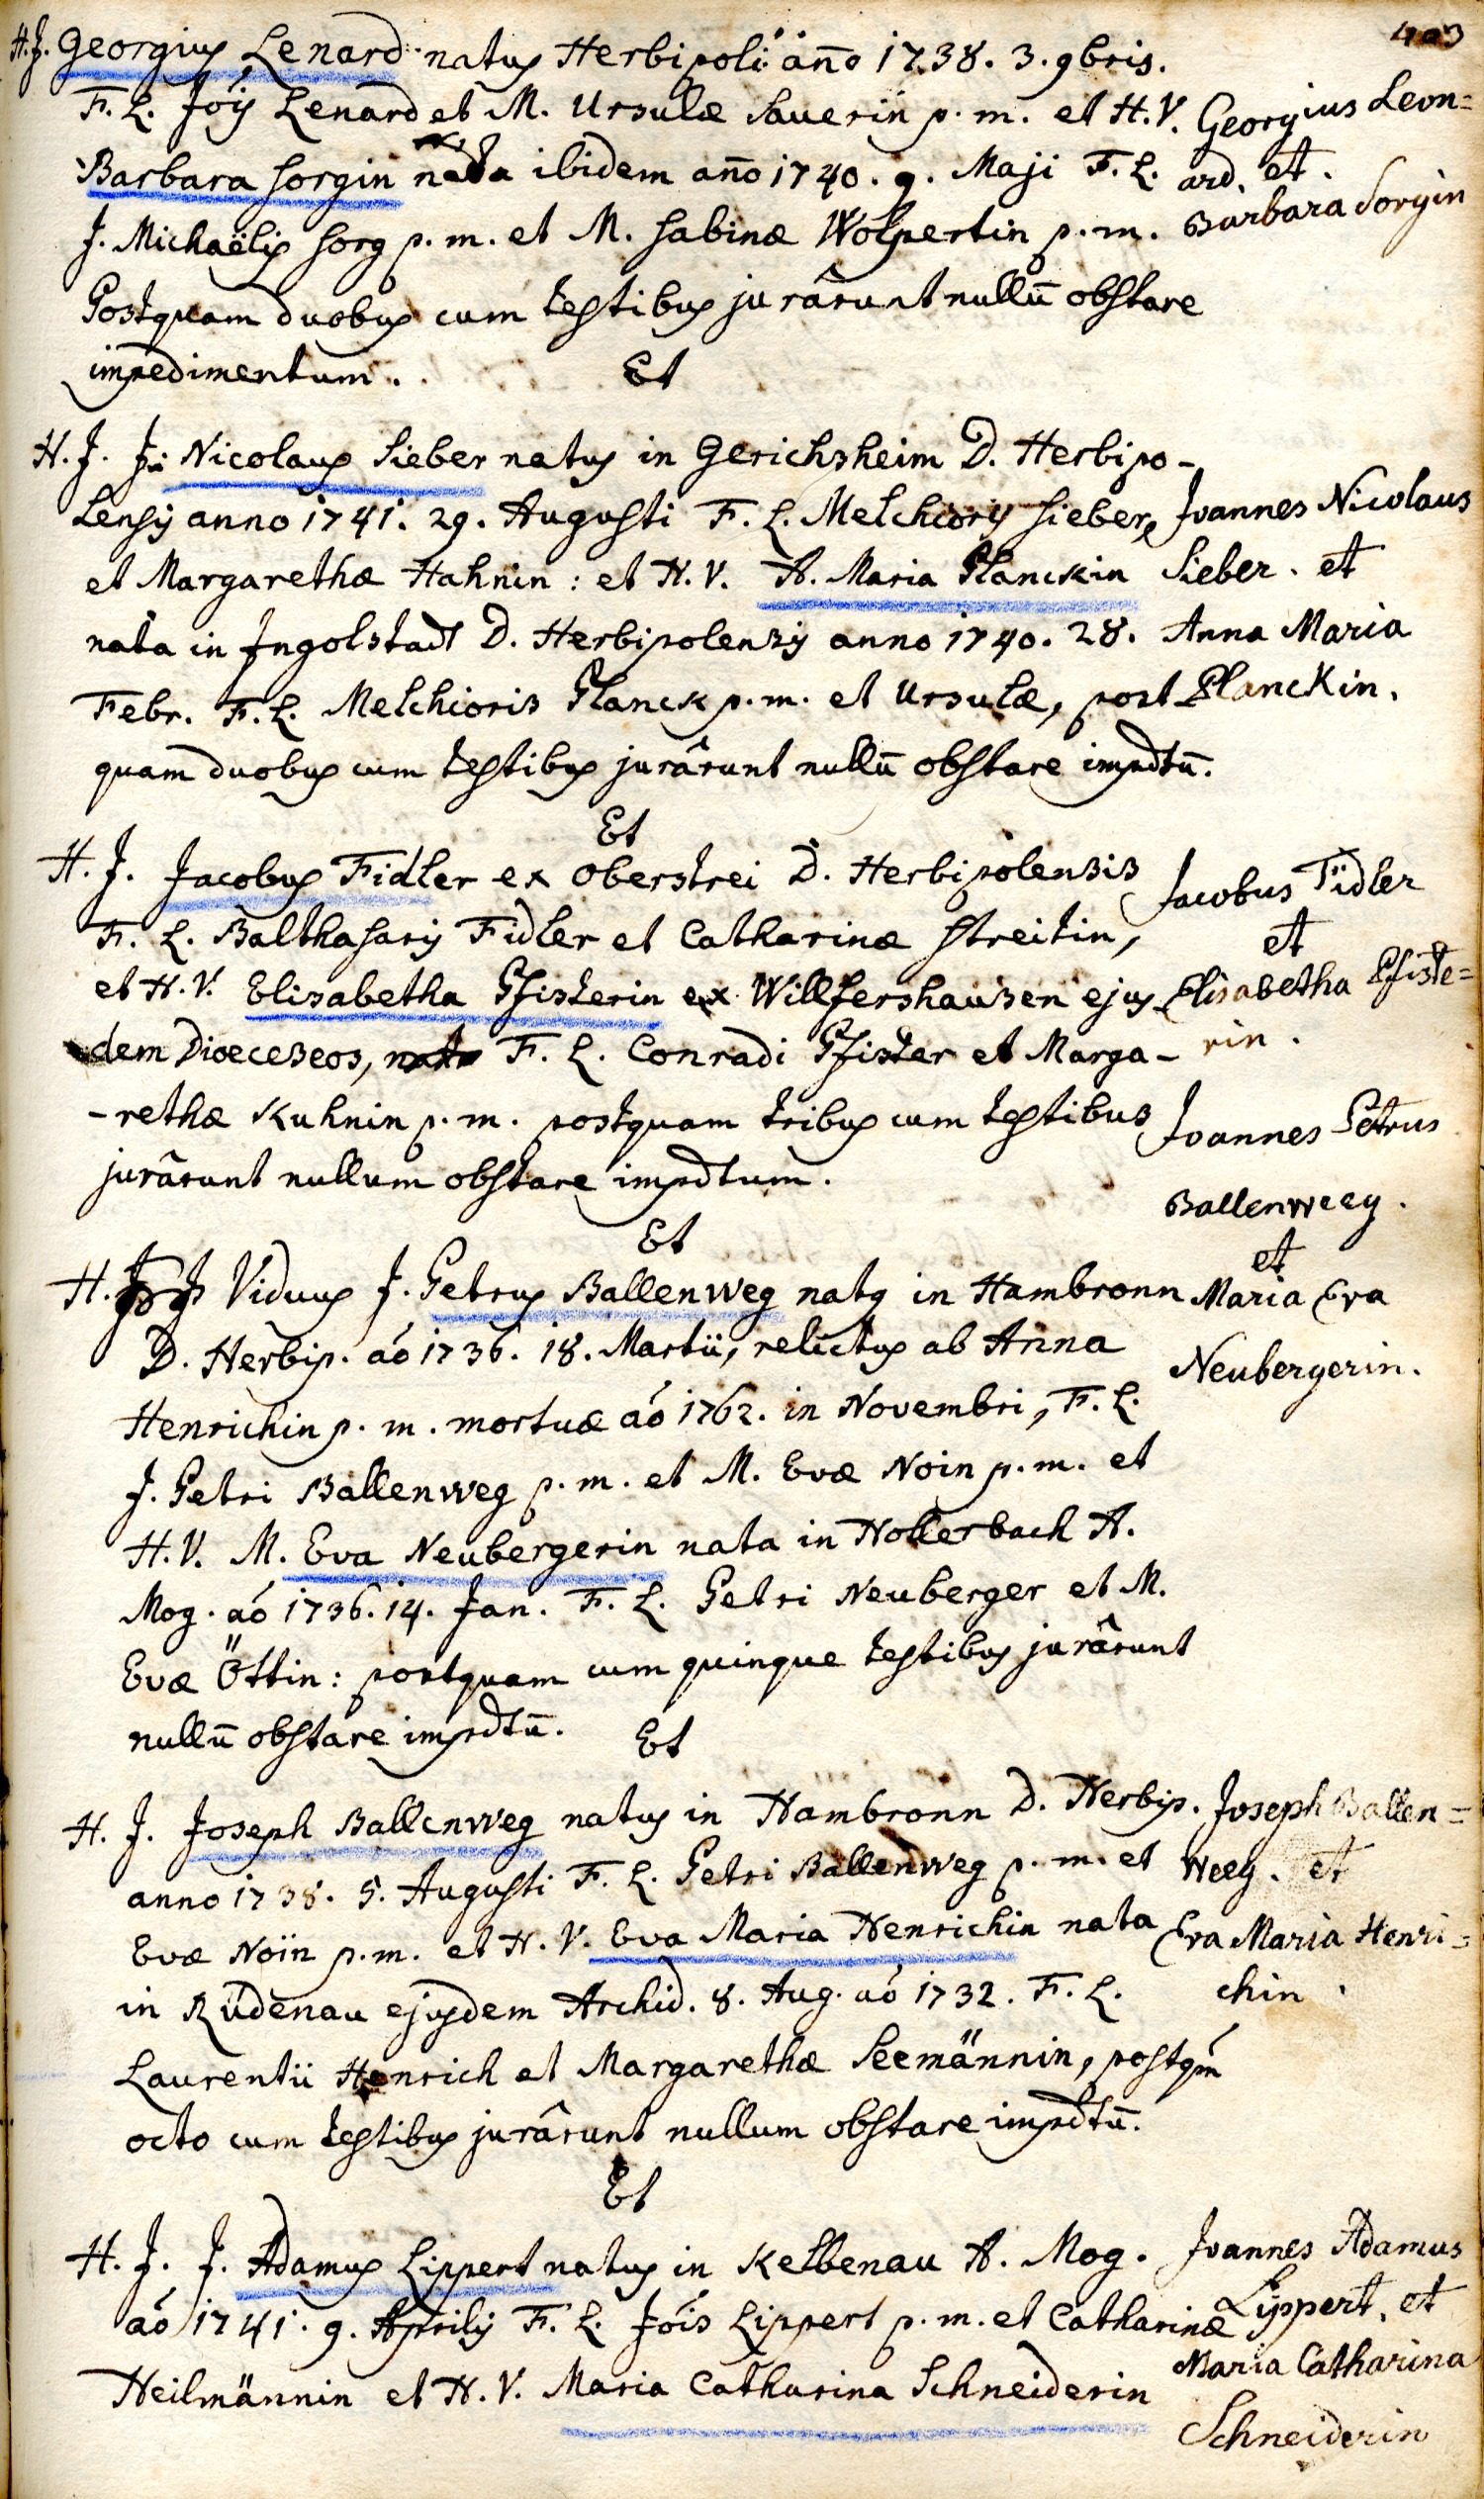 403
H. J. Georgius Lenard natus Herbipoli año 1738. 3. 9bris.
F. L. Jôis Lenard et M. Ursulæ Sauerin p. m. et H. V.
Barbara Sorgin nata ibidem año 1740. 9. Maji F. L.
J. Michaëlis Sorg p. m. et M. Sabinæ Wolpertin p. m.
Postquam duobus cum testibus jurârunt nullū obstare
impedimentum.
Georgius Leon=
ard. et.
Barbara Sorgin
Et
H. J. Jo Nicolaus Sieber natus in Gerichsheim D. Herbipo-
lensis anno 1741. 29. Augusti F. L. Melchioris Sieber,
et Margarethæ Hahnin: et H. V. A. Maria Planckin
nata in Ingolstadt D. Herbipolensis anno 1740. 28.
Febr. F. L. Melchioris Planck p. m. et Ursulæ, post
quam duobus cum testibus jurârunt nullū obstare impdtū.
Joannes Nicolaus
Sieber. et
Anna Maria
Planckin.
Et
H. J. Jacobus Fidler ex Oberstrei D. Herbipolensis
F. L. Balthasaris Fidler et Catharinæ Streitin,
et H. V. Elisabetha Pfisterin ex Willfershausen ejus
dem Dioeceseos, F. L. Conradi Pfister et Marga-
-rethæ Kuhnin p. m. postquam tribus cum testibus
jurârunt nullum obstare impdtum.
Jacobus Fidler
et
Elisabetha Pfiste=
rin.
Et
H. J. Viduus J. Petrus Ballenweg natq in Hambronn
D. Herbip. aó 1736. 18. Martii, relictus ab Anna
Henrichin p. m. mortuæ aó 1762. in Novembri, F. L.
J. Petri Ballenweg p. m. et M. Evæ Noin p. m. et
H. V. M. Eva Neubergerin nata in Hollerbach A.
Mog. aó 1736. 14. Jan. F. L. Petri Neuberger et M.
Evæ Öttin: postquam cum quinque testibus jurârunt
nullū obstare impdtū.
Joannes Petrus
Ballenweeg.
et
Maria Eva
Neubergerin.
Et
H. J. Joseph Ballenweg natus in Hambronn D. Herbip.
anno 1738. 5. Augusti F. L. Petri Ballenweg p. m. et
Evæ Noin p. m. et H. V. Eva Maria Henrichin nata
in Rüdenau ejusdem Archid. 8. Aug. aó 1732. F. L.
Laurentii Henrich et Margarethæ Seemännin, postqm
octo cum testibus jurârunt nullum obstare impdtū.
Joseph Ballen=
weeg. et
Eva Maria Henri=
chin.
Et
H. J. J. Adamus Lippert natus in Kelbenau A. Mog.
aó 1741. 9. Aprilis F. L. Jóis Lippert p. m. et Catharinæ
Heilmännin et H. V. Maria Catharina Schneiderin
Joannes Adamus
Lippert. et
Maria Catharina
Schneiderin